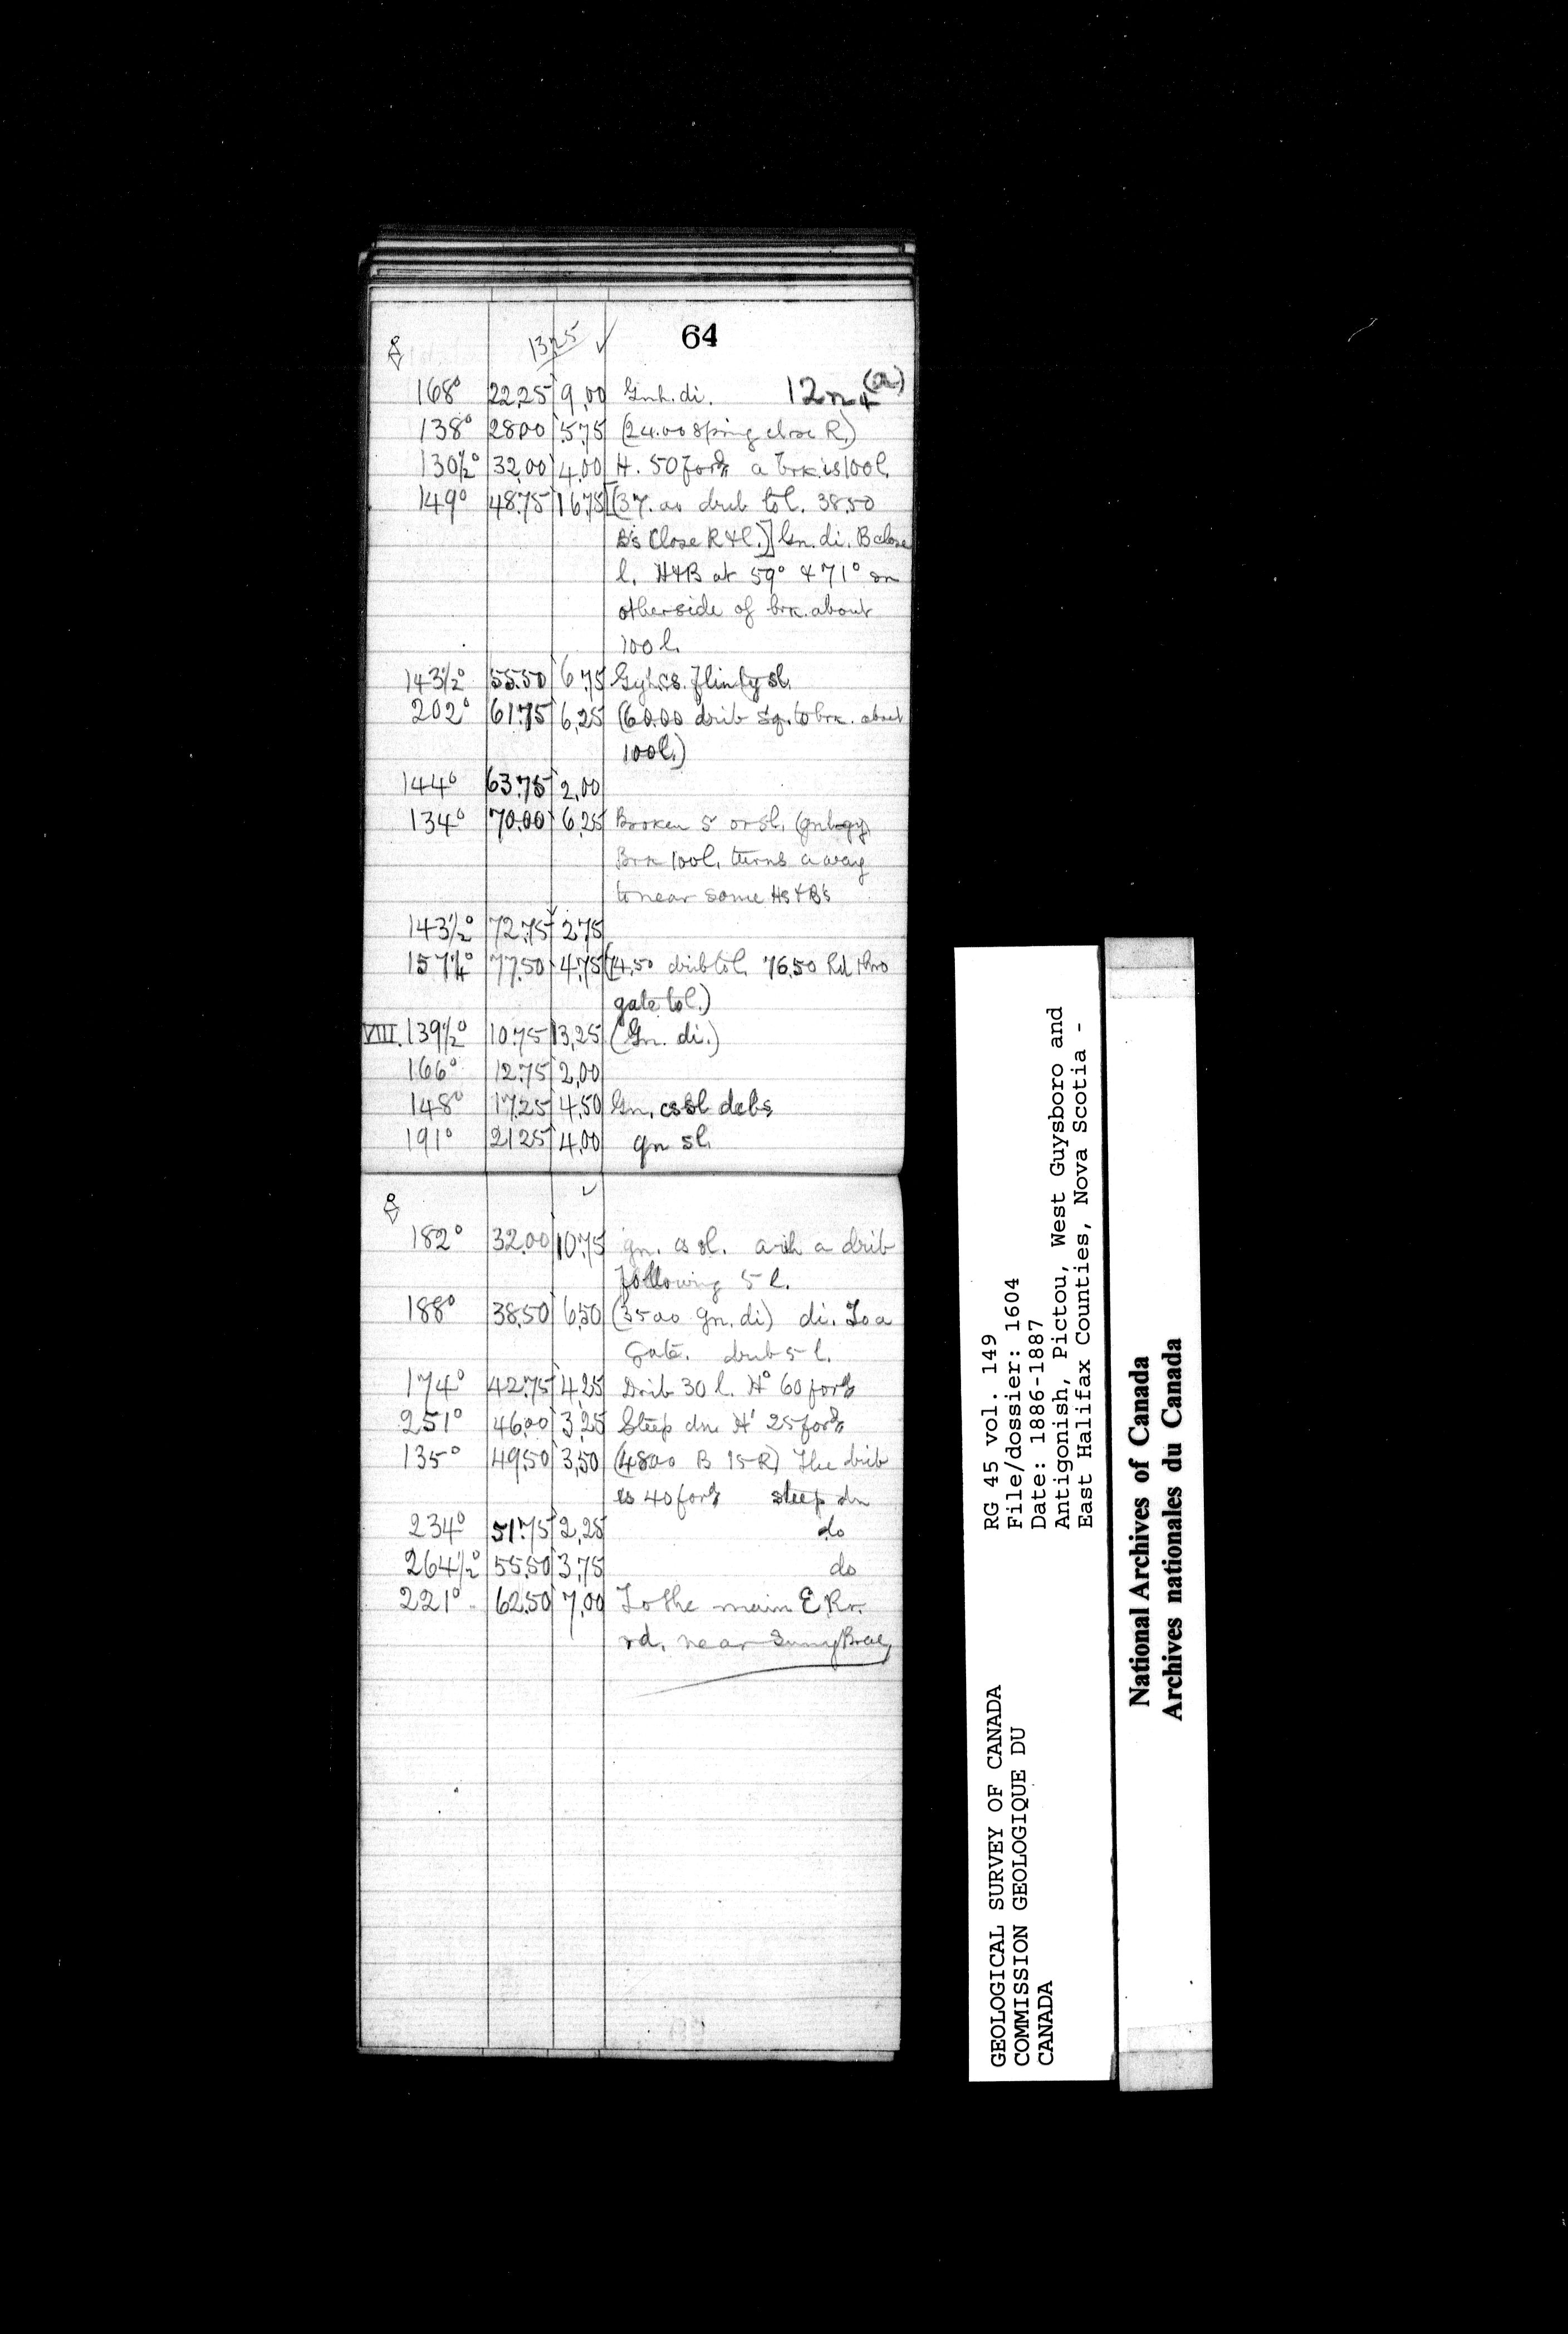 64
13.25 ✓
168° 22.25 9.00 Gnh. di. 12n4 (a)
138° 28.00 5.75 (24.00 Spring close R.)
130½° 32.00 4.00 H. 50 for'd a brk. is 100 l.
149° 48.75 16.75 [(37.00 drib to l. 38.50
B's Close R & l.)] Gn. di. B close
l. H&B at 59° & 71° on
otherside of brk. about
100 l.
143½° 55.50 6.75 Gyh. cs. flinty sl.
202° 61.75 6.25 (60.00 drib sq. to brk. about
100 l.)
144° 63.75 2.00
134° 70.00 6.25 Broken s or sl. (gnh-gy)
Brk 100 l. turns away
to near some Hs & B's
143½° 72.75 2.75
157¼° 77.50 4.75 (74.50 drib to l. 76.50 Rd thro
gate to l.)
VIII. 139½° 10.75 13.25 (Gn. di.)
166° 12.75 2.00
148° 17.25 4.50 Gn. cs sl debs
191° 21.25 4.00 gn sl.
✓
182° 32.00 10.75 gn. cs sl. with a drib
following 5 l.
188° 38.50 6.50 (35.00 gn. di) di. To a
Gate. drib 5 l.
174° 42.75 4.25 Drib 30 l. H° 60 for'd
251° 46.00 3.25 Steep dn. H' 25 for'd
135° 49.50 3.50 (48.00 B 15 R) The drib
is 40 for'd steep dn
234° 51.75 2.25 do
264½° 55.50 3.75 do
221° 62.50 7.00 To the main E. Rr.
rd. near Sunny Brae
RG 45 vol. 149
File/dossier: 1604
Date: 1886-1887
Antigonish, Pictou, West Guysboro and
East Halifax Counties, Nova Scotia -
GEOLOGICAL SURVEY OF CANADA
COMMISSION GEOLOGIQUE DU
CANADA
National Archives of Canada
Archives nationales du Canada